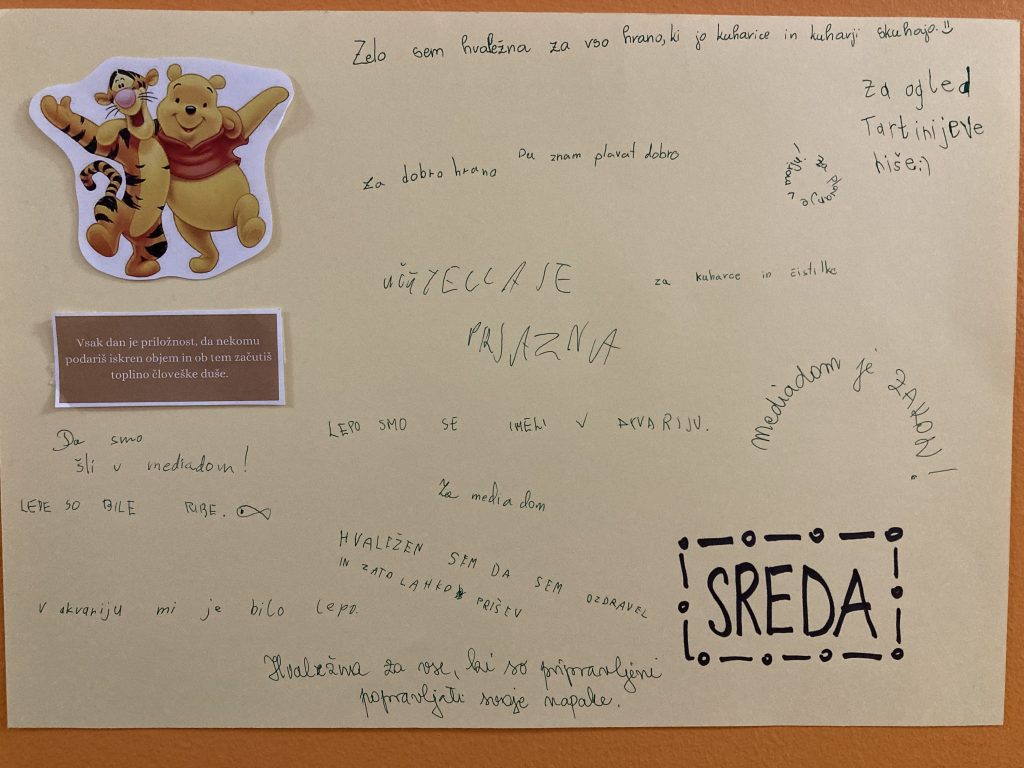 Zelo sem hvaležna za vso hrano, ki jo kuharice in kuharji skuhajo.
Za ogled
Tartinijeve
hiše:)
Za dobro hrano
Da znam plavat dobro
za plavanje
Vsak dan je priložnost, da nekomu
podariš iskren objem in ob tem začutiš
toplino človeške duše.
za kuharce in čistilke
PRJAZNA
mediadom je ZAKON!
LEPO SMO SE IMELI V AKVARIJU.
Da smo
šli v mediadom!
LEPE SO BILE RIBE.
Za media dom
HVALEŽEN SEM DA SEM OZDRAVEL
IN ZATO LAHKO PRIŠEV
SREDA
V akvariju mi je bilo lepo.
Hvaležna za vse, ki so pripravljeni
popravljati svoje napake.